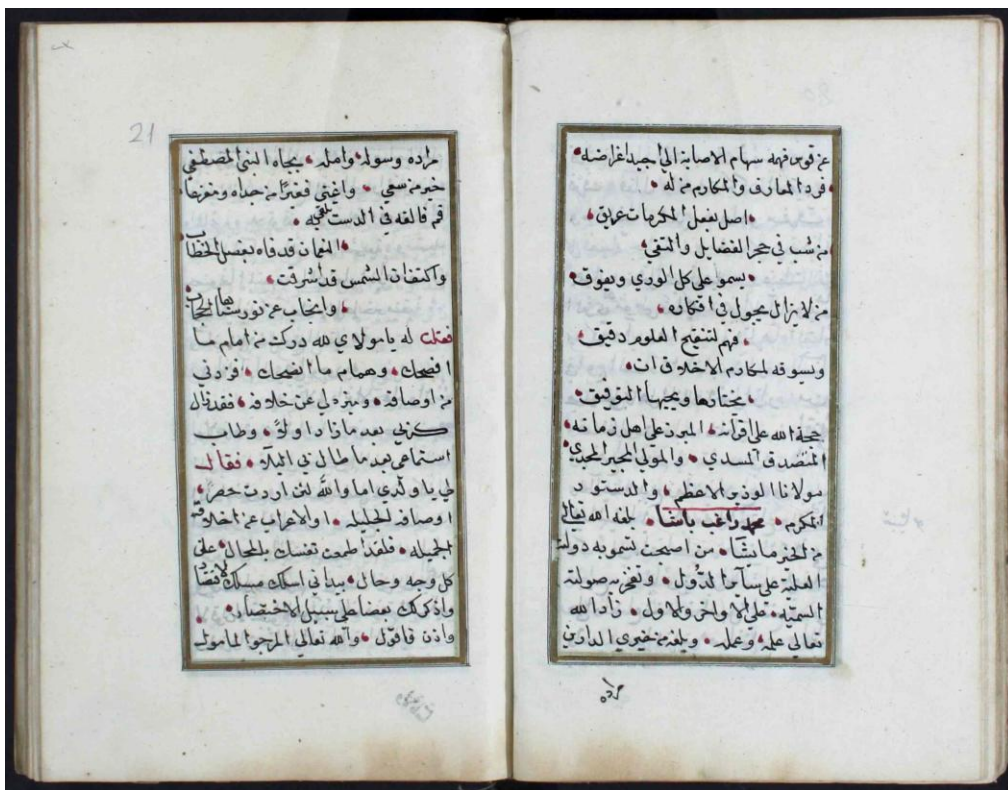 عن قوس فهمه سهام الاصابة الي ابعد اغراضه
فرد المعارف والمكارم من له
اصل بفعل المكرمات عريق
من شب في حجر الفضايل والتقي
يسموا علي كل الوري ويفوق
من لايزال يجول في افكاره
فهم لتنقيح العلوم دقيق
ويسوقه لمكارم الاخلاق ان
يختارها ويجيها التوفيق
حجة الله علي اقرانه المبرز علي اهل زمانه
المتصدق المسدي والمولي المجير المجدي
مولانا الوزير الاعظم والدستور
المكرم محمد راغب باشا بلغه الله تعالي
من الخير مايشا من اصبحت تسمو به دولته
العلية علي سآئر الدول وتفخر به صولته
السميه علي الاواخر والاول زاد الله
تعالي علمه وعمله وبلغه من خيري الدارين
مراده
21
مراده وسوله وامله بجاه النبي المصطفي
خير من سقي واغني فقيرا من جداه
قم فالقه في الدست تلقي به
النعمان قد فاه بفصل الخطاب
واكتفان الشمس قد اشرقت
وانجاب عن نور سناها الحجاب
فقلت له يامولاي لله درك من امام ما
افصحك وهمام ما انصحك فزدني
من اوصافه وميز لي عن خلافه فقد قال
كربي بعد ما زاد اولا وطاب
استماعي بعد ما طال بي البلآء فقال
لي ياولدي اما والله لئن اردت حصر
اوصافه الجليله او الاعراب عن اخلاقه
الجميله فلقد اطمعت نفسك بالمحال علي
كل وجه وحال بيد اني اسلك مسلك
واذكر لك بعضا علي سبيل الاختصار
واذن فاقول والله تعالي المرجو المامول